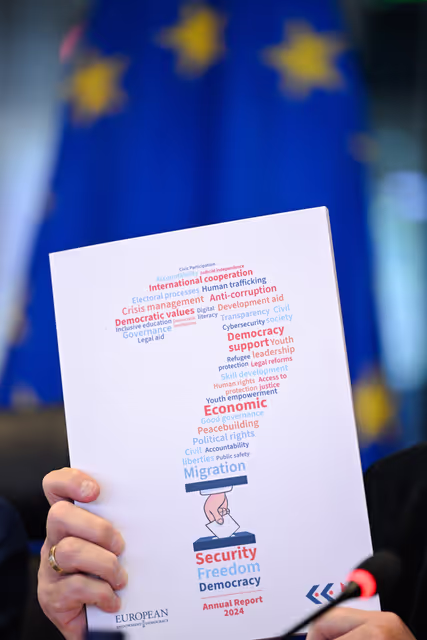 Civic Participation
Accountability Judicial Independence
International cooperation
Electoral processes Human trafficking
Crisis management Anti-corruption
Democratic values Digital literacy Development aid
Inclusive education Transparency Civil society
Governance Cybersecurity
Legal aid
Democracy
support Youth
Refugee leadership
protection Legal reforms
Skill development
Human rights Access to
protection justice
Youth empowerment
Economic
Good governence
Peacebuilding
Political rights
Civil Accountability
liberties Public safety
Migration
Security
Freedom
Democracy
Annual Report
2024
EUROPEAN